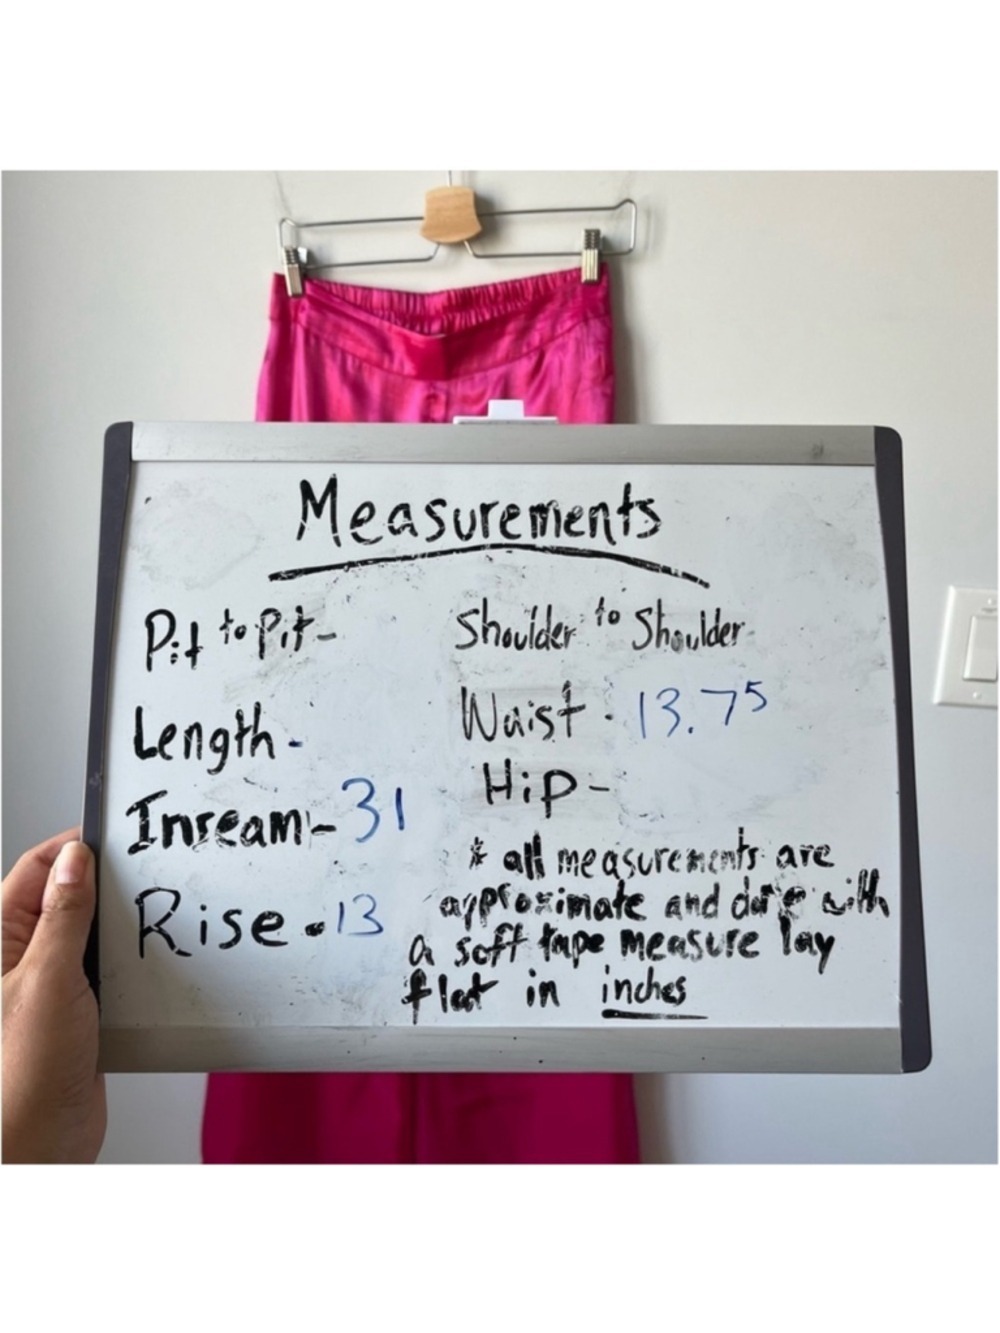 Measurements
Pit to Pit-
Shoulder to Shoulder
Length-
Waist - 13.75
Inseam- 31
Hip-
Rise - 13
* all measurements are
approximate and done with
a soft tape measure lay
flat in inches